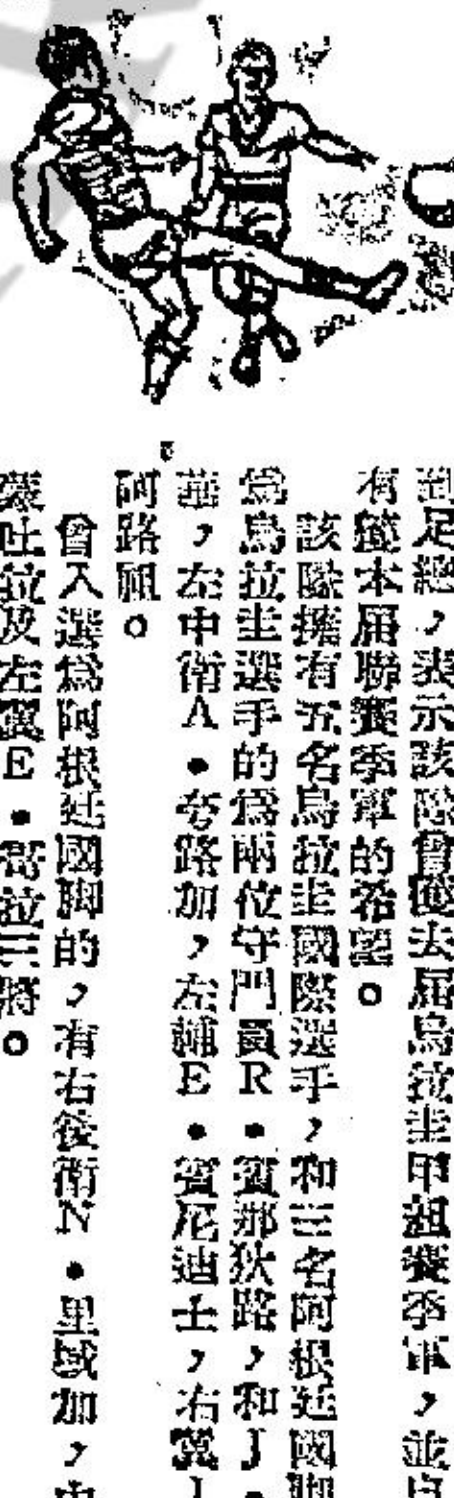 到足總，表示該隊曾獲去屆烏拉圭甲組賽季軍，並
有獲本屆聯賽季軍的希望。
該隊擁有五名烏拉圭國際選手，和三名阿根廷國脚
爲烏拉圭選手的爲兩位守門員R·賓那狄路，和J·
華，左中衛A·夸路加，左輔E·賓尼迪士，右翼J
阿路煎。
曾入選爲阿根廷國脚的，有右後衛N·里域加，中
蒙吐拉及左翼E·哥拉三將。